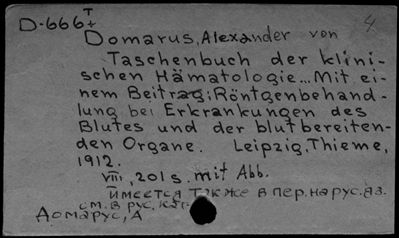 D-666 т
4
Domarus, Alexander von
Taschenbuch der klini-
schen Hämatologie... Mit ei-
nem Beitrag: Röntgenbehand-
lung bei Erkrankungen des
Blutes und der blutbereiten-
den Organe. Leipzig, Thieme,
1912.
VIII, 201 s. mit Abb.
имеется также в пер. на рус. яз.
см. в рус. кат.
Домарус, А